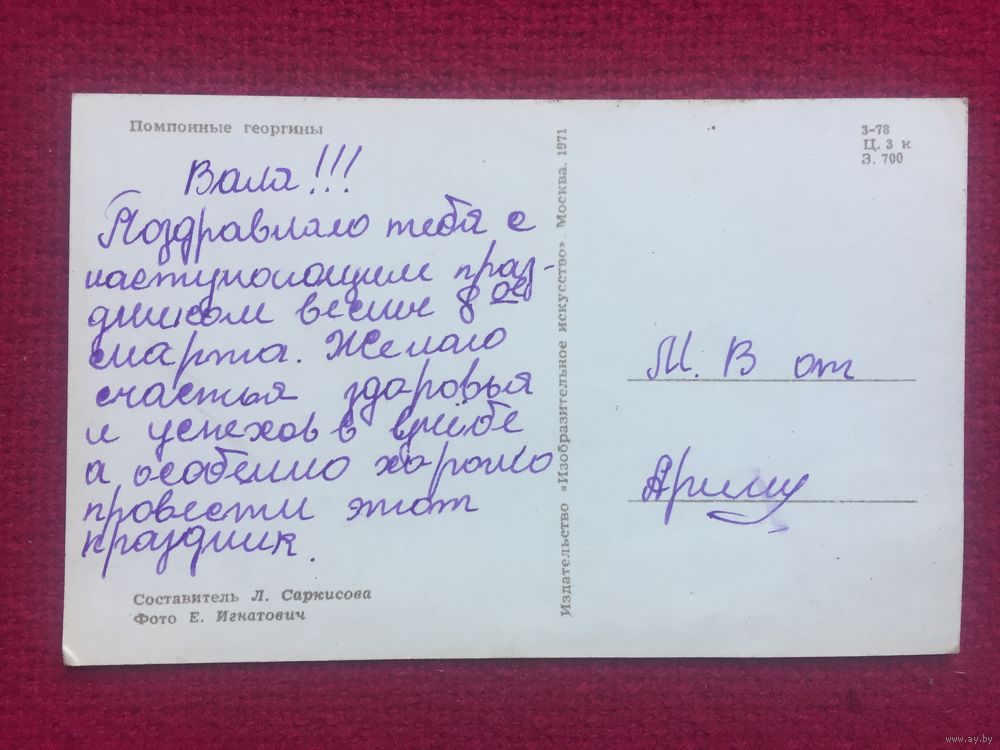 Помпонные георгины
Валя!!!
Поздравляю тебя с
наступающим праз-
дником весны 8ое
марта. Желаю
счастья здоровья
и успехов в учёбе
а особенно хорошо
провести этот
праздник.
Составитель Л. Саркисова
Фото Е. Игнатович
Издательство «Изобразительное искусство». Москва. 1971
3-78
Ц. 3 к
З. 700
М. В от
www.ay.by